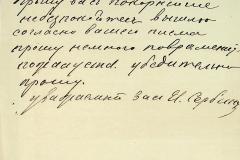 прошу вас покорнейше
небезпокойтесь вышлю
согласно вашей писма
прошу немного повремените
пожалуста. убедительно
прошу.
уважающий вас И. Сербин